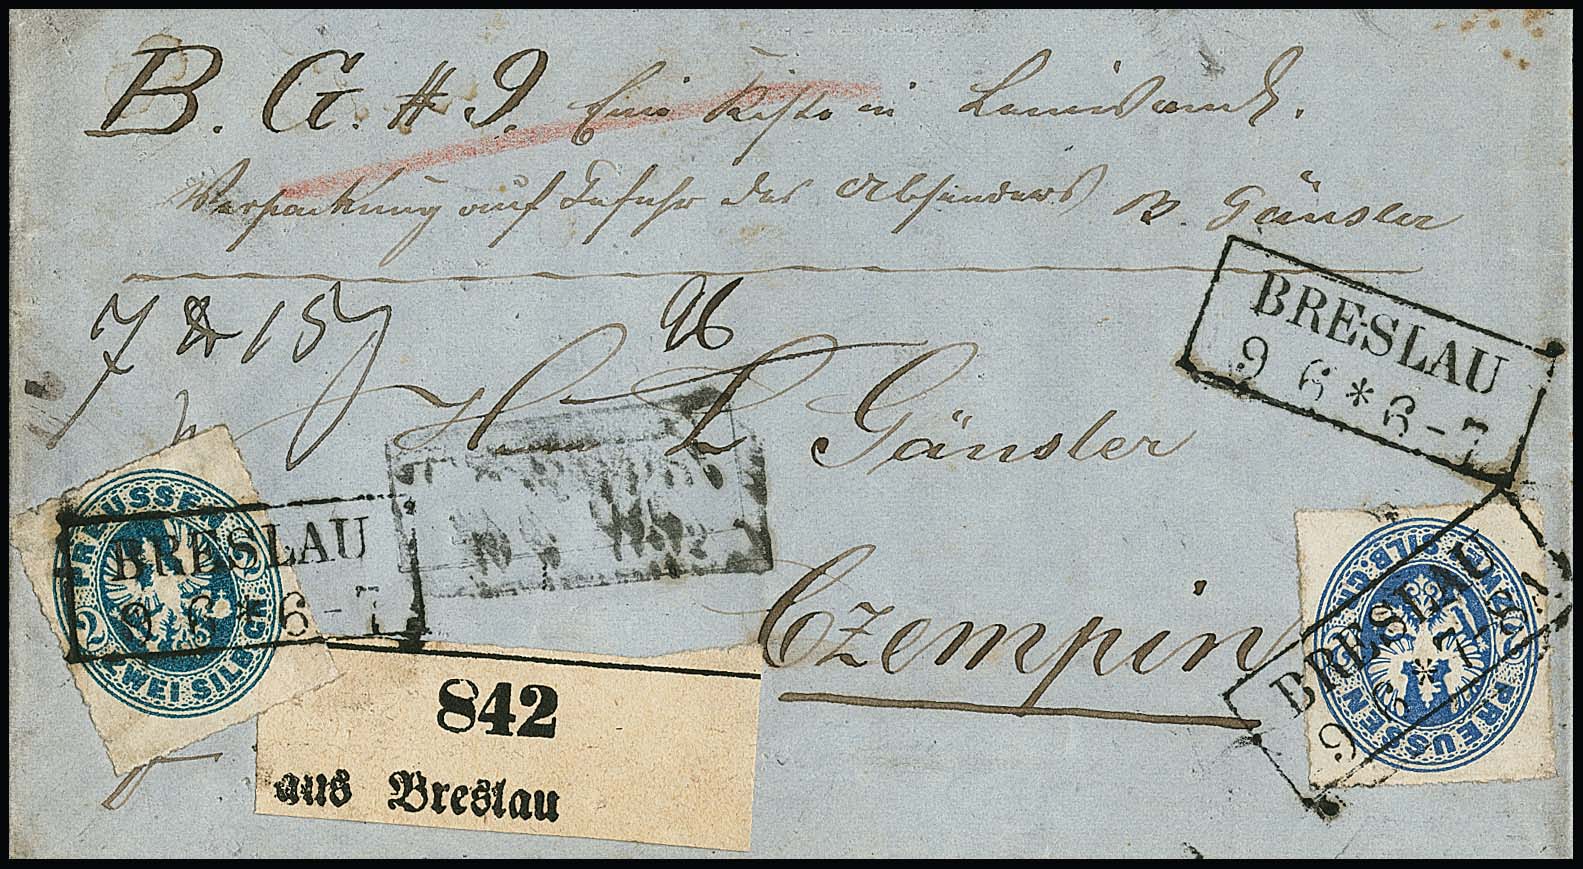 B. G. # 9. Eine Kiste in Leinwand.
Verpackung auf Gefahr des Absenders B. Gänsler
7 & 15
96
Herrn L Gänsler
Czempin
BRESLAU
9 6 * 6-7
PREUSSEN
2 ZWEI SILB. GR. 2
BRESLAU
9 6 * 6-7
842
aus Breslau
PREUSSEN
2 ZWEI SILB. GR. 2
BRESLAU
9 6 *